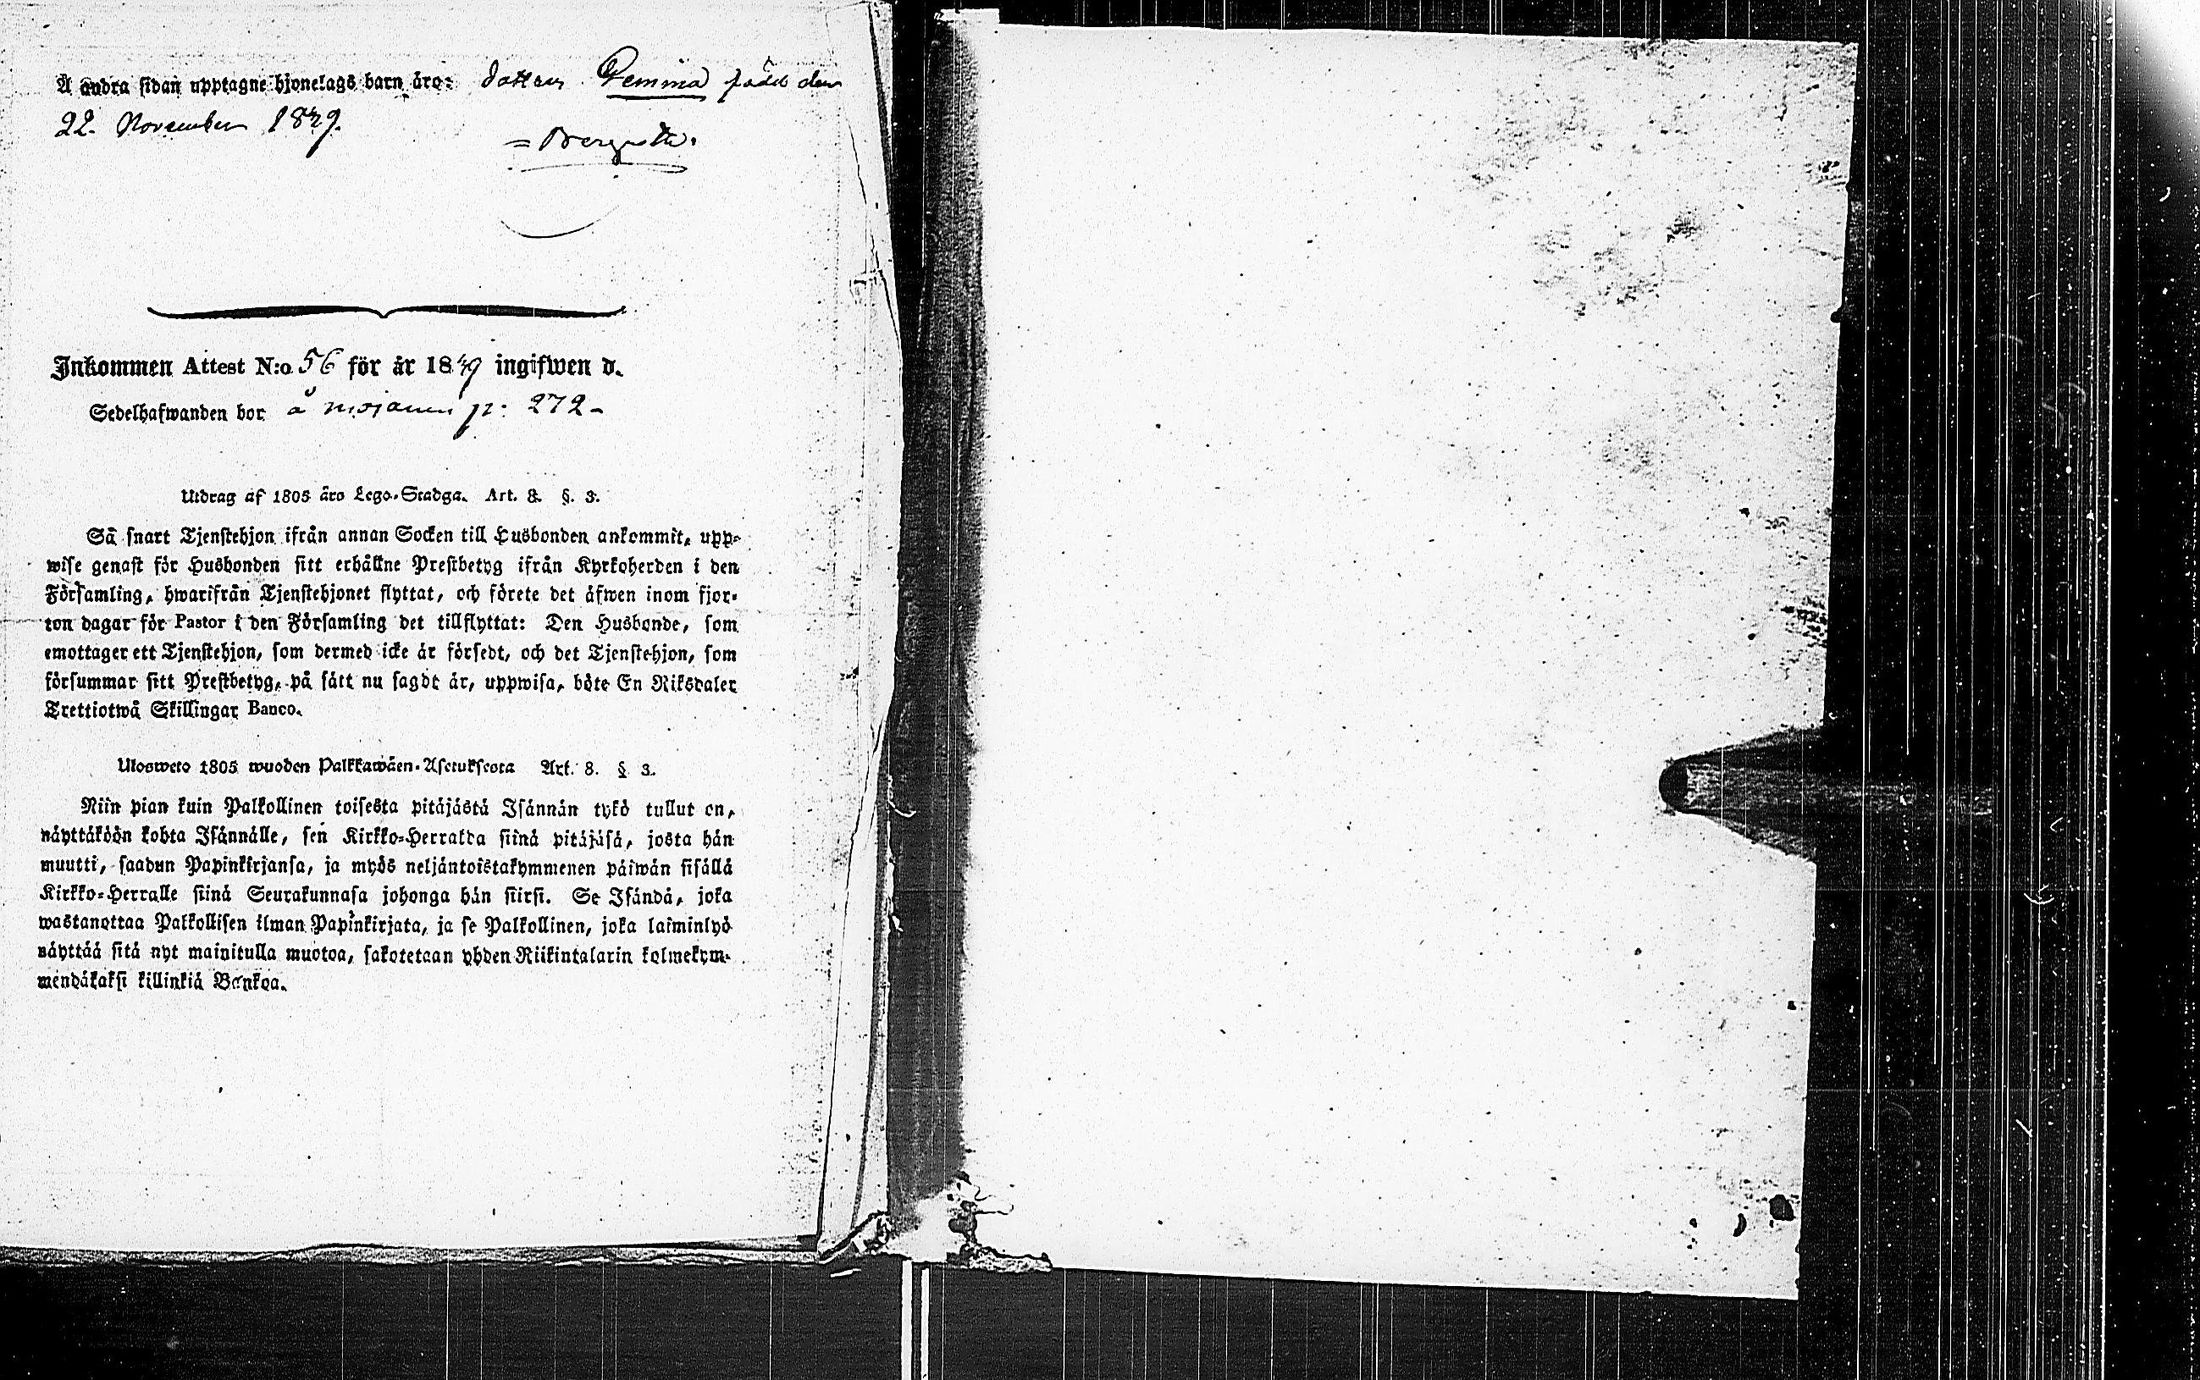 Å andra sidan upptagne hjonelags barn äro: dottren Demina född den
22. November 1849.
Inkommen Attest N:o 56 för år 1849 ingifwen d.
Sedelhafwanden bor å p: 272-
Utdrag af 1805 års Lego-Stadga. Art. 8. §. 3.
Så snart Tjenstehjon ifrån annan Socken till Husbonden ankommit, upp-
wise genast för Husbonden sitt erhållne Prestbetyg ifrån Kyrkoherden i den
Församling, hwarifrån Tjenstehjonet flyttat, och förete det äfwen inom fjor-
ton dagar för Pastor i den Församling det tillflyttat: Den Husbonde, som
emottager ett Tjenstehjon, som dermed icke är försedt, och det Tjenstehjon, som
försummar sitt Prestbetyg, på sätt nu sagdt är, uppwisa, böte En Riksdaler
Trettiotwå Skillingar Banco.
Ulosweto 1805 wuoden Palkkawäen-Asetuksesta Art. 8. § 3.
Niin pian kuin Palkollinen toisesta pitäjästä Isännän tykö tullut on,
näyttäköön kohta Isännälle, sen Kirkko-Herralda siinä pitäjäsä, josta hän
muutti, saadun Papinkirjansa, ja myös neljäntoistakymmenen päiwän sisällä
Kirkko-Herralle siinä Seurakunnasa johonga hän siirsi. Se Isändä, joka
wastanottaa Palkollisen ilman Papinkirjata, ja se Palkollinen, joka laiminlyö
näyttää sitä nyt mainitulla muotoa, sakotetaan yhden Riikintalarin kolmekym-
mendäkaksi killinkiä Bankoa.